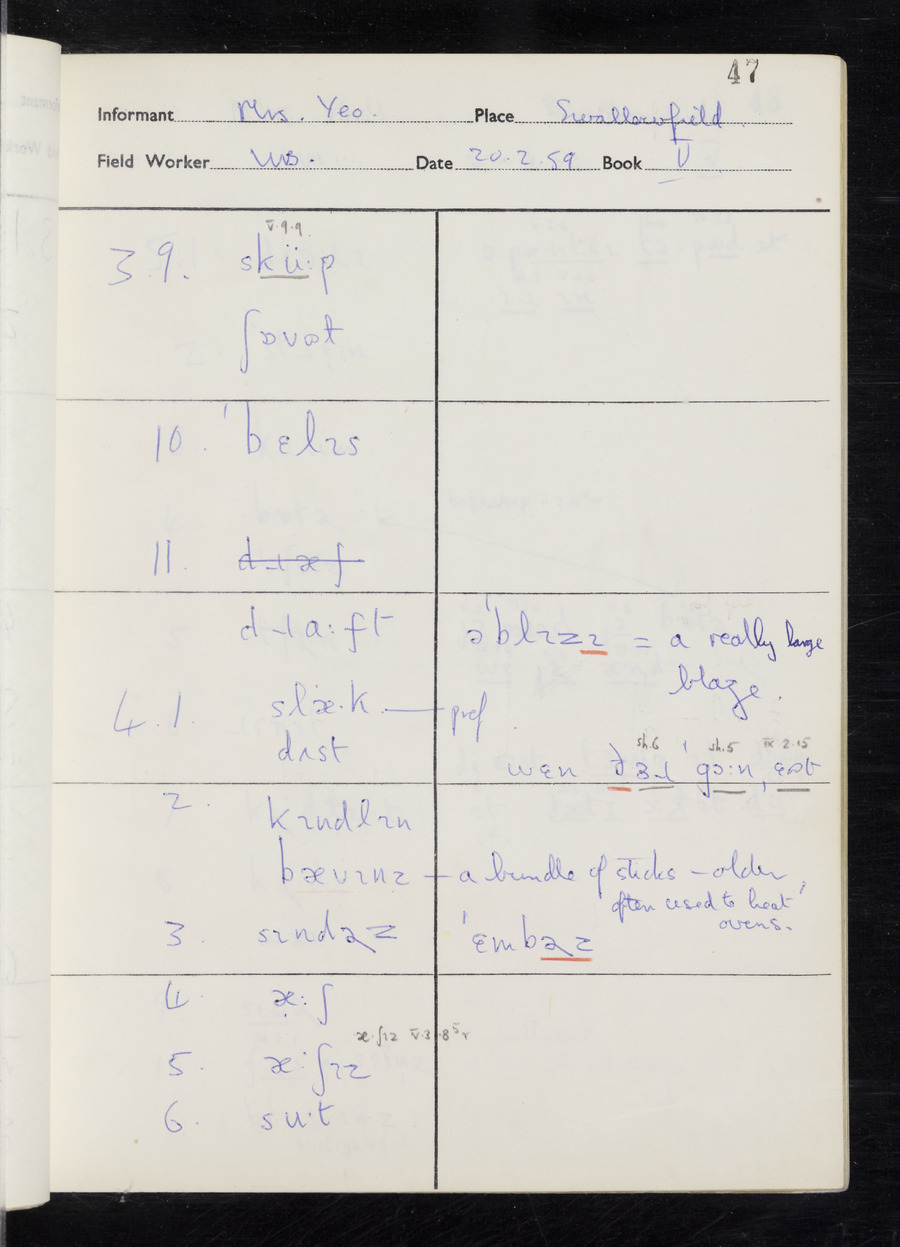 47
Informant Mrs. Yeo. Place Swallowfield
Field Worker WB. Date 20.2.59 Book V
V.9.9
3 9. skü:p
ʃɒvət
10. ˈbɛlɪs
11. d̶ɹ̶æ̶f̶
dɹa:ft əˈblɪzɪ = a really large
blaze.
4.1. slæ·k — pref.
dʌst
sh.6 sh.5 IX 2.15
wɛn ðɜɹ ˈgɔ:n,
2. kɪndlɪn
bævɪnz — a bundle of sticks – older,
often used to heat
ovens.
3. sɪndəz ˈɛmbəz
4. æ:ʃ
æ·ʃɪz V.3.8⁵r
5. æ:ʃɪz
6. su·t